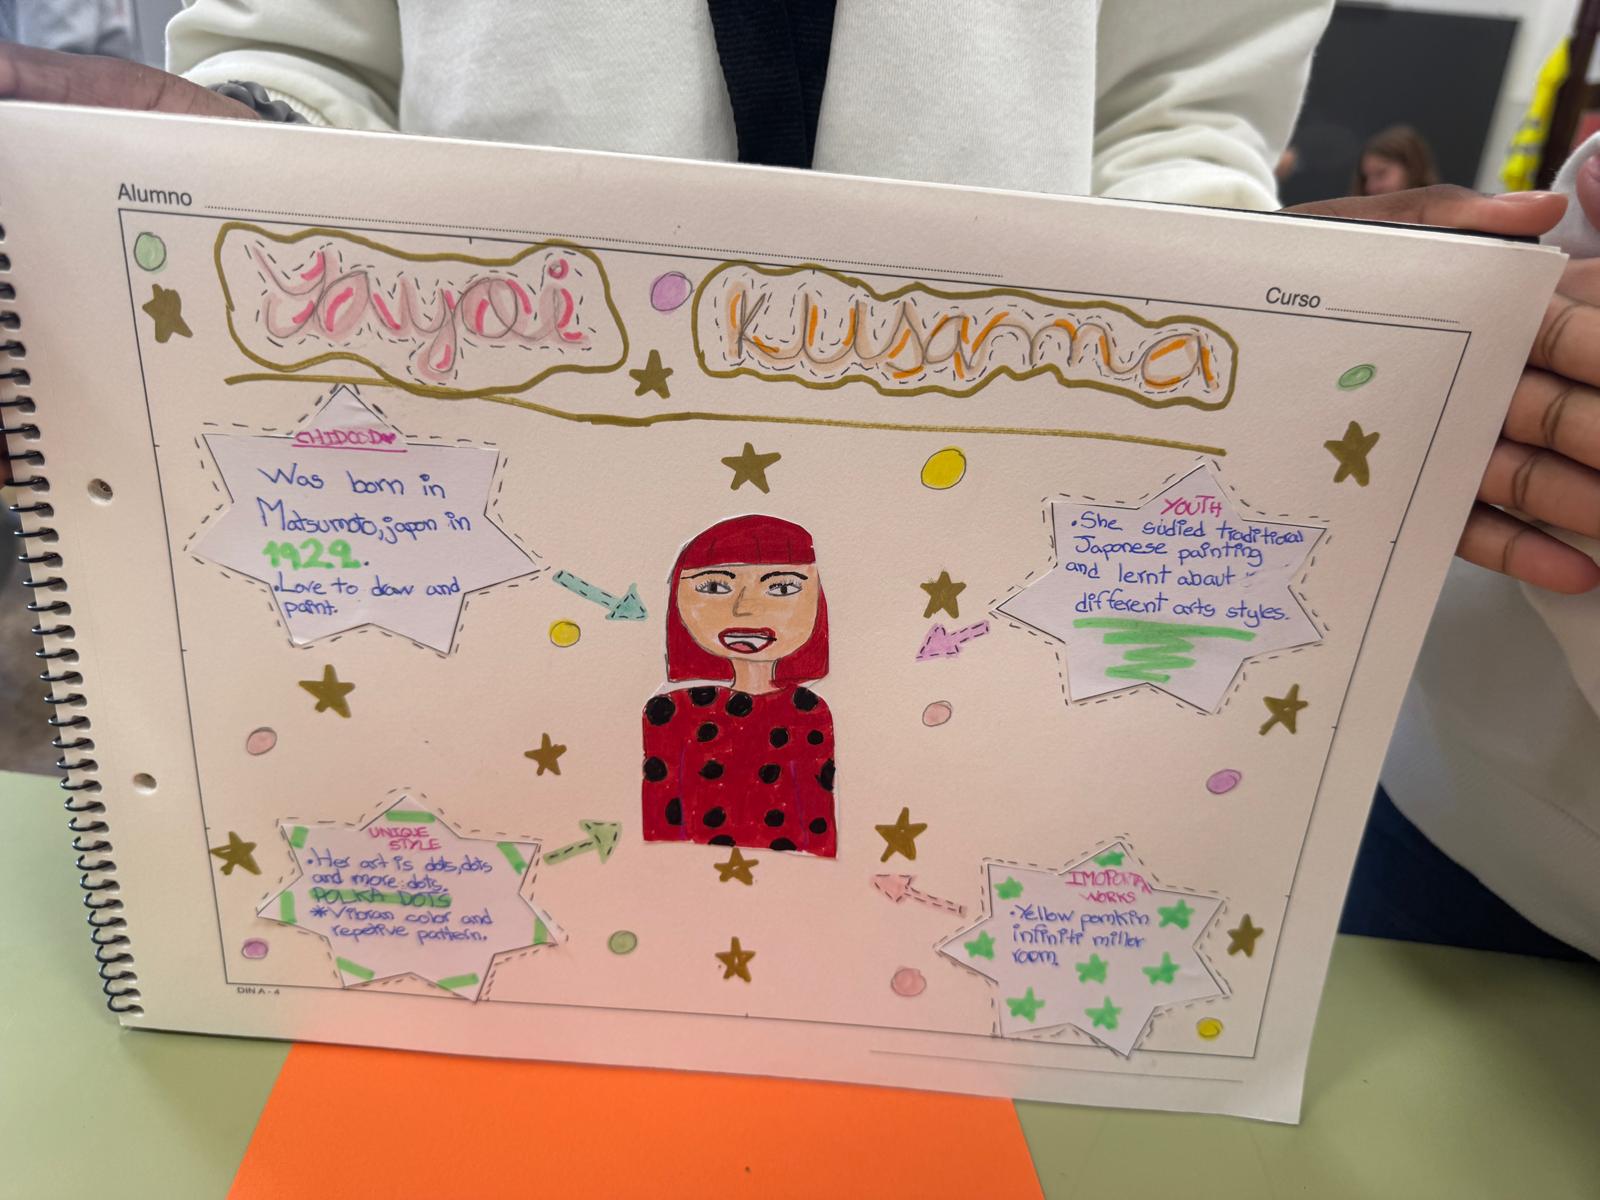 Alumno
Curso
Yayoi Kusama
CHIDOOD
Was born in
Matsumoto, japon in
1929.
•Love to draw and
paint.
YOUTH
•She sudied traditional
Japanese painting
and lernt abaut
different arts styles.
UNIQUE
STYLE
•Her art is dots, dots
and more: dots.
POLKA DOTS
*Vibran color and
repetive pattern.
IMOPORTAN
WORKS
•Yellow pomkin
infiniti miller
room.
DIN A - 4